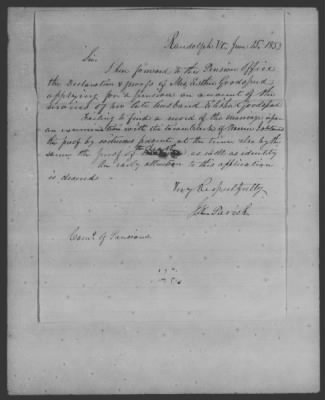 Randolph Vt. June 25th 1853
Sir
I now forward to the Pension Office
the Declaration & proofs of Mrs Esther Goodspeed
applying for a pension on account of the
services of her late husband
Failing to find a record of the marriage upon
an examination with the Town Clerks of
the proof by witnesses present at the time also by the
same the proof of as well as identity
An early attention to this application
is desired
Very Respectfully
Parish
Comr. of Pensions